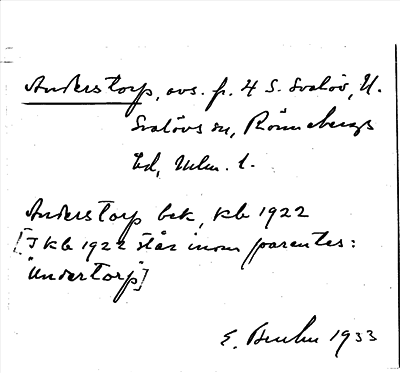 Anderstorp, avs. fr. 4 S. Svalöv, N.
Svalövs sn, Rönnebergs
hd, Mlm. l.
Anderstorp bek, kb 1922
[I kb 1922 står inom parentes:
"Undertorp"]
E. 1933